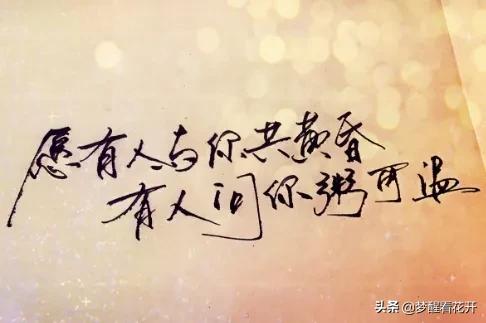 愿有人与你共黄昏
有人问你粥可温
头条 @梦醒看花开